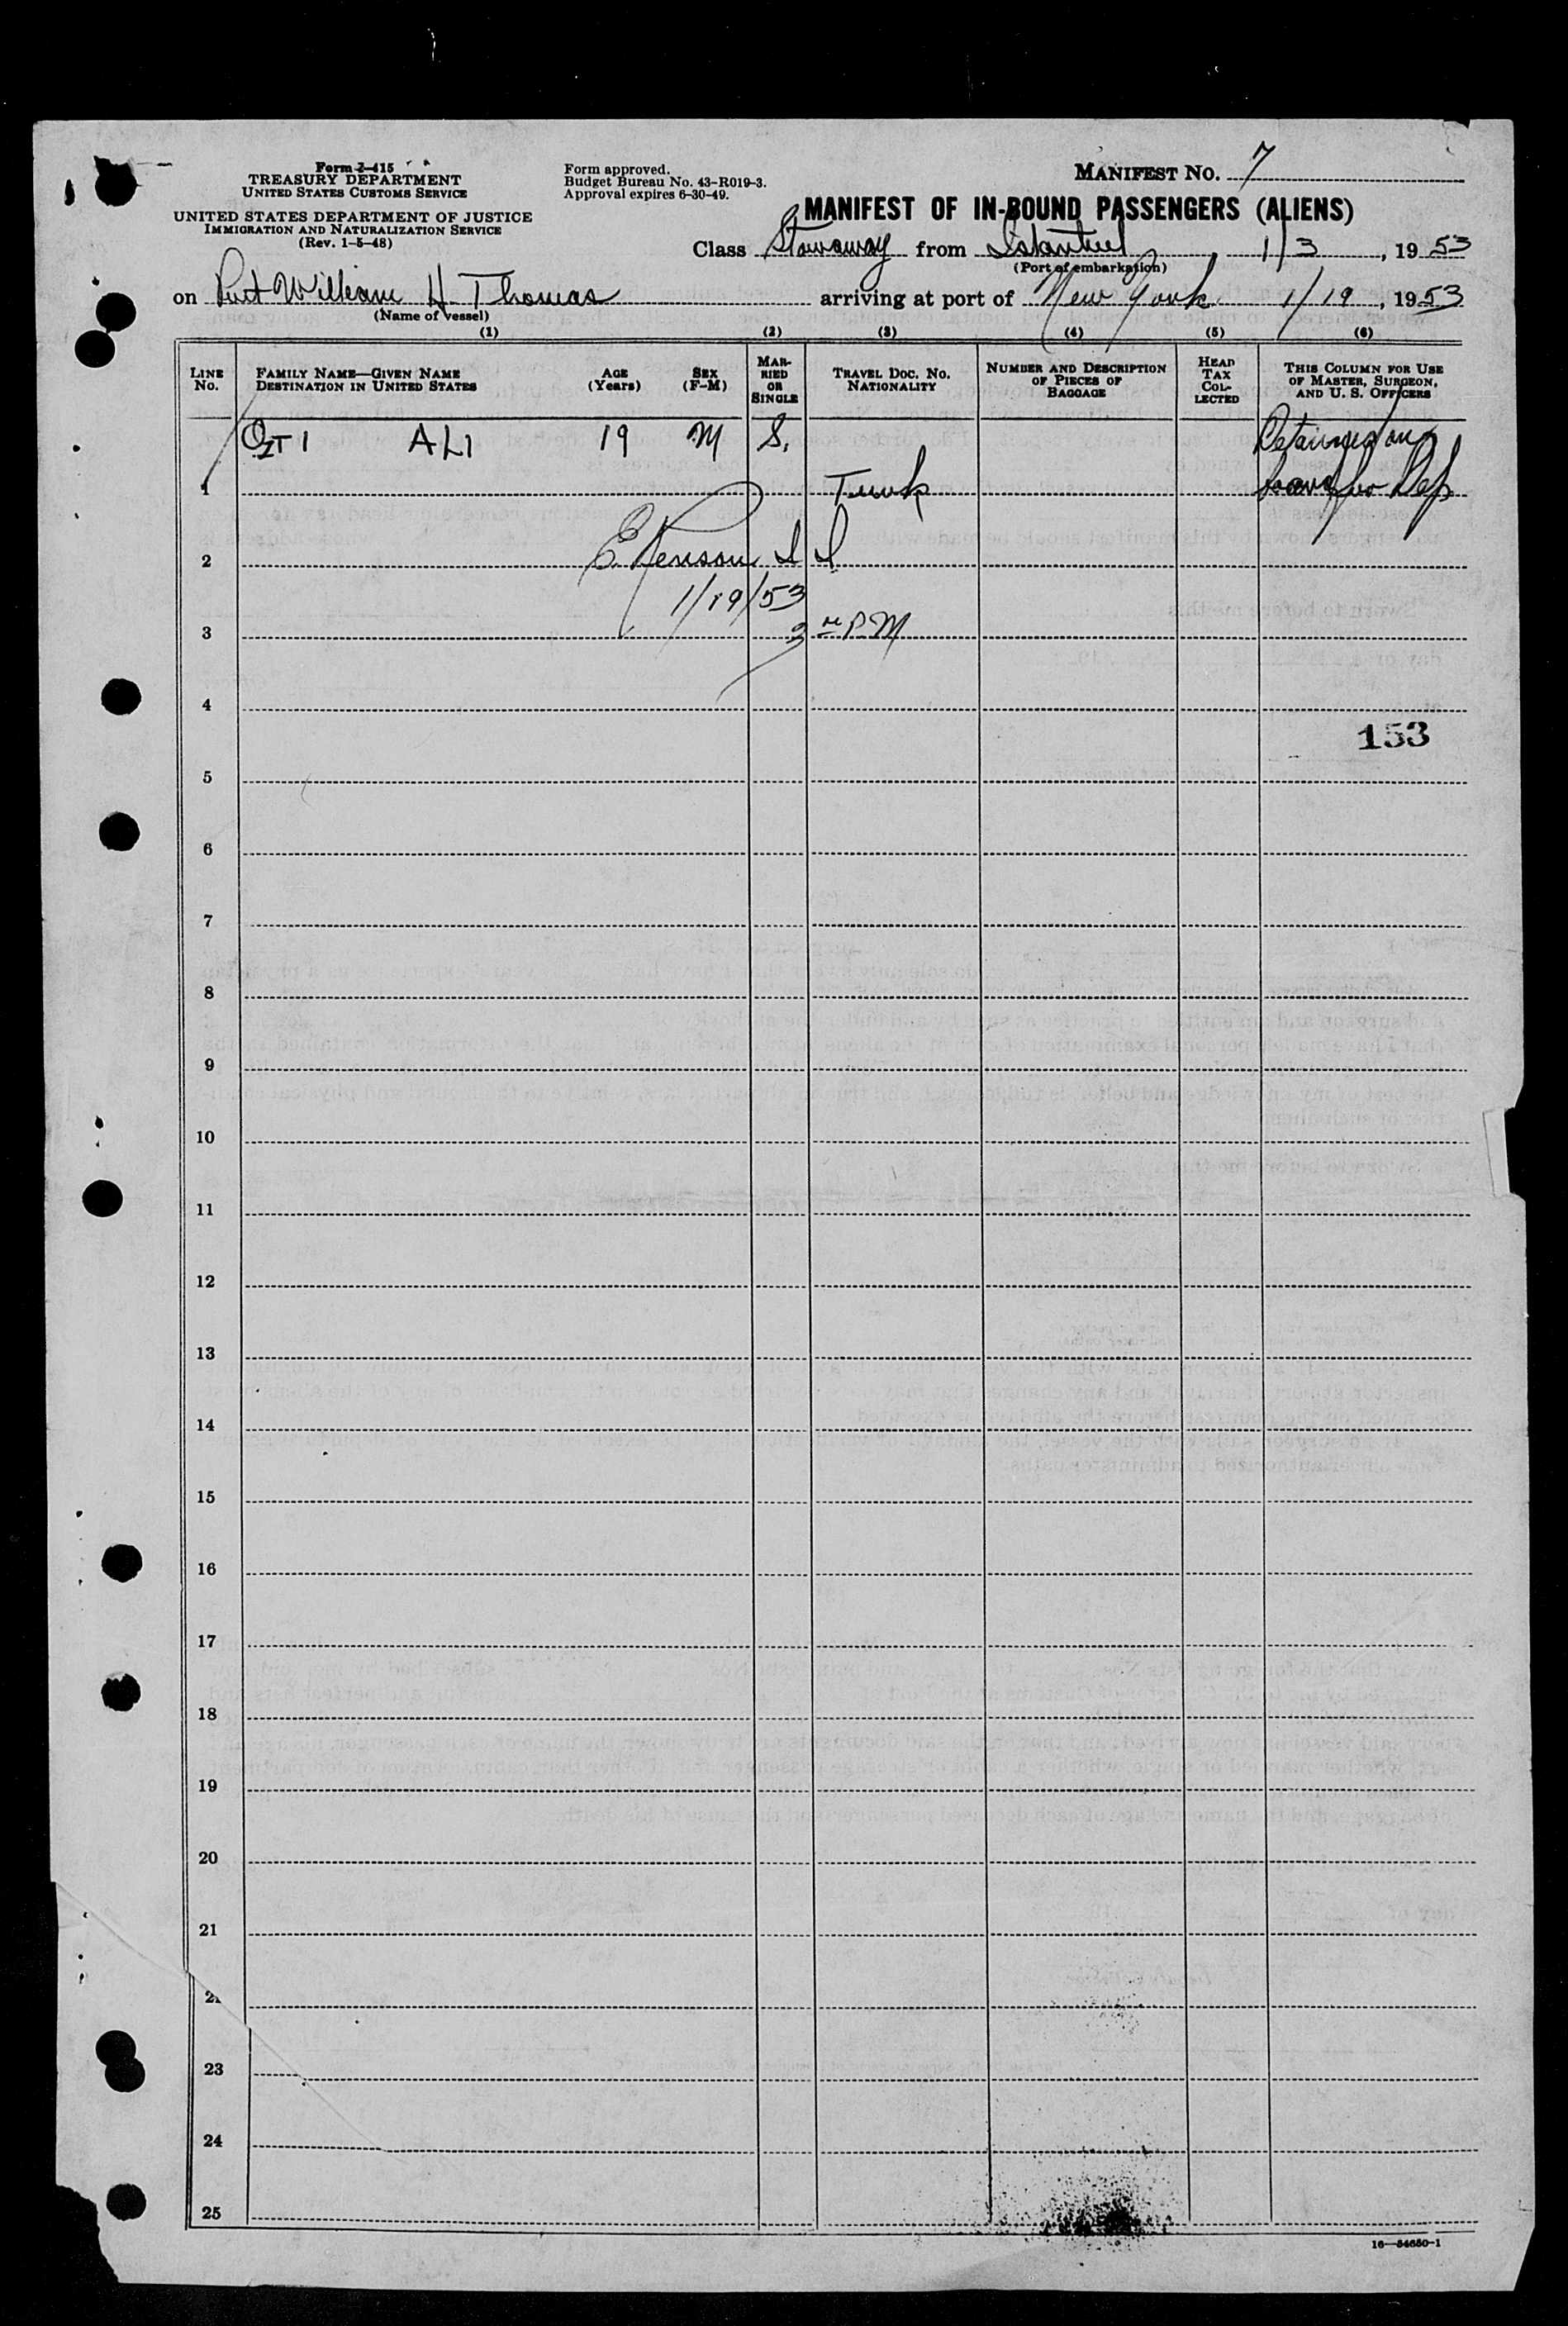 Form I-415
TREASURY DEPARTMENT
UNITED STATES CUSTOMS SERVICE
UNITED STATES DEPARTMENT OF JUSTICE
IMMIGRATION AND NATURALIZATION SERVICE
(Rev. 1-5-48)
Form approved.
Budget Bureau No. 43-R019-3.
Approval expires 6-30-49.
MANIFEST NO. 7
MANIFEST OF IN-BOUND PASSENGERS (ALIENS)
Class Stowaway from Istanbul, 1/3, 1953
(Port of embarkation)
on Pvt William H. Thomas arriving at port of New York 1/19, 1953
(Name of vessel)
(1) (2) (3) (4) (5) (6)
LINE No. FAMILY NAME—GIVEN NAME DESTINATION IN UNITED STATES AGE (Years) SEX (F-M) MARRIED OR SINGLE TRAVEL DOC. NO. NATIONALITY NUMBER AND DESCRIPTION OF PIECES OF BAGGAGE HEAD TAX COLLECTED THIS COLUMN FOR USE OF MASTER, SURGEON, AND U. S. OFFICERS
ALI 19 M S. Detained on
1 Turk board
2
1/19/53
3 PM
4
153
5
6
7
8
9
10
11
12
13
14
15
16
17
18
19
20
21
23
24
25
16—54650-1